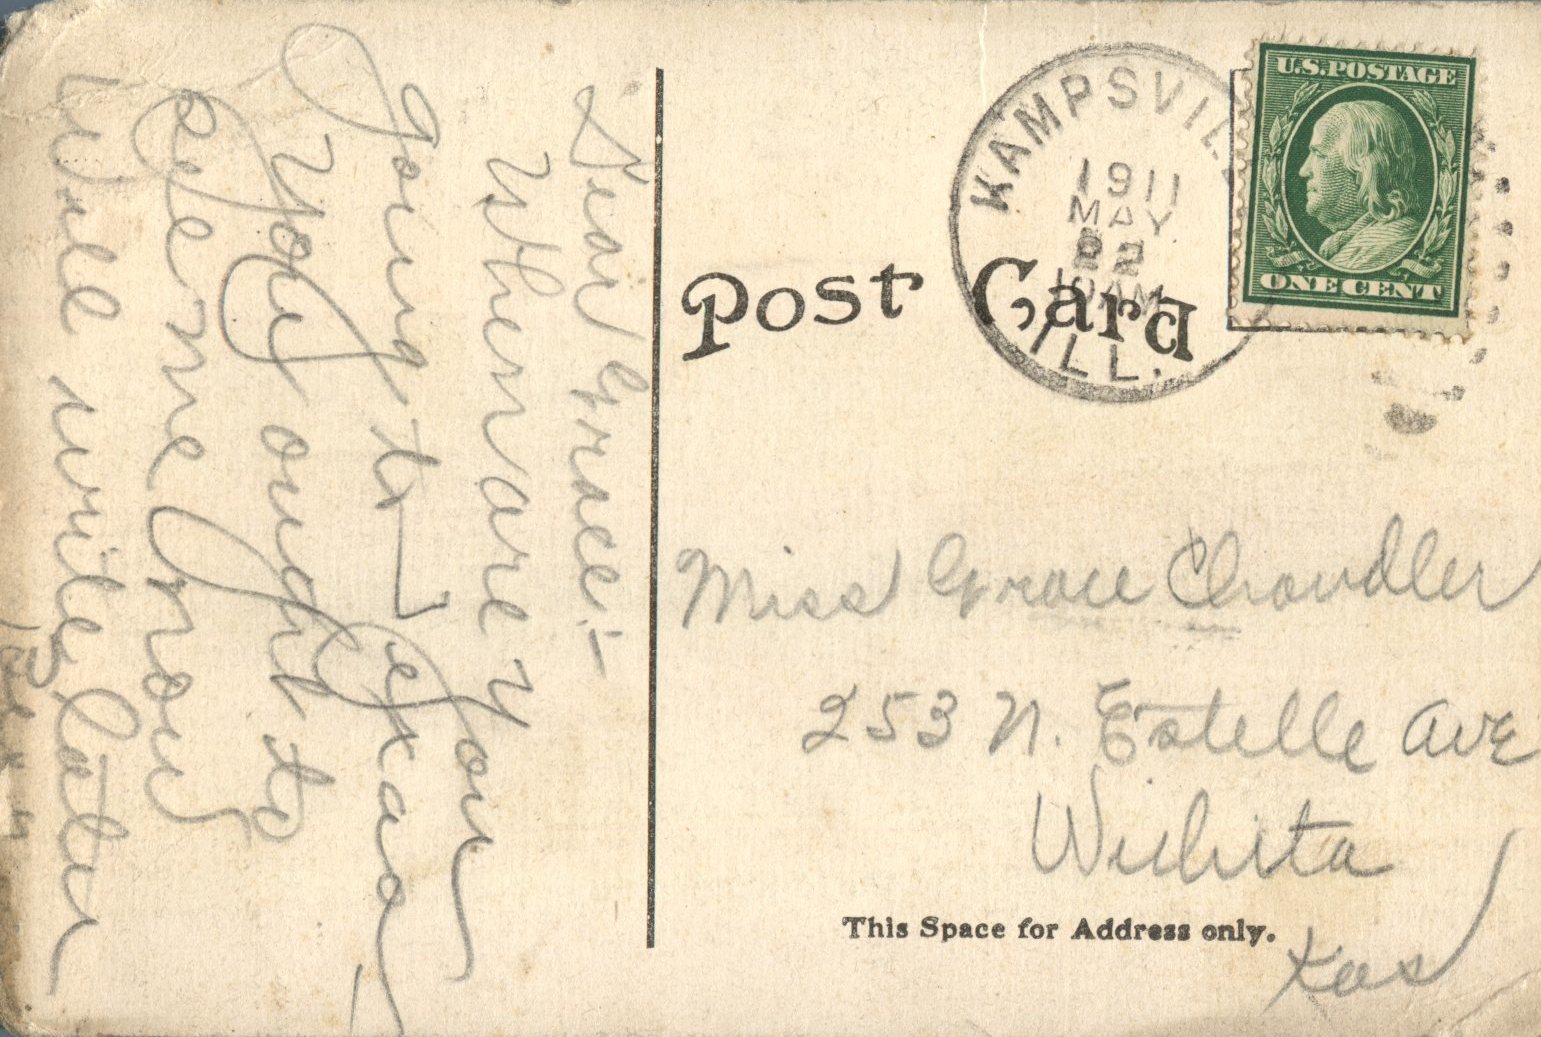 Dear Grace:-
When are you
going to Texas
You ought to
see me now
Will write later
Post Card
KAMPSVIL
1911
MAY
22
10 AM
ILL.
U.S. POSTAGE
ONE CENT
Miss Grace Chandler
253 N. Estelle Ave
Wichita
Kas
This Space for Address only.